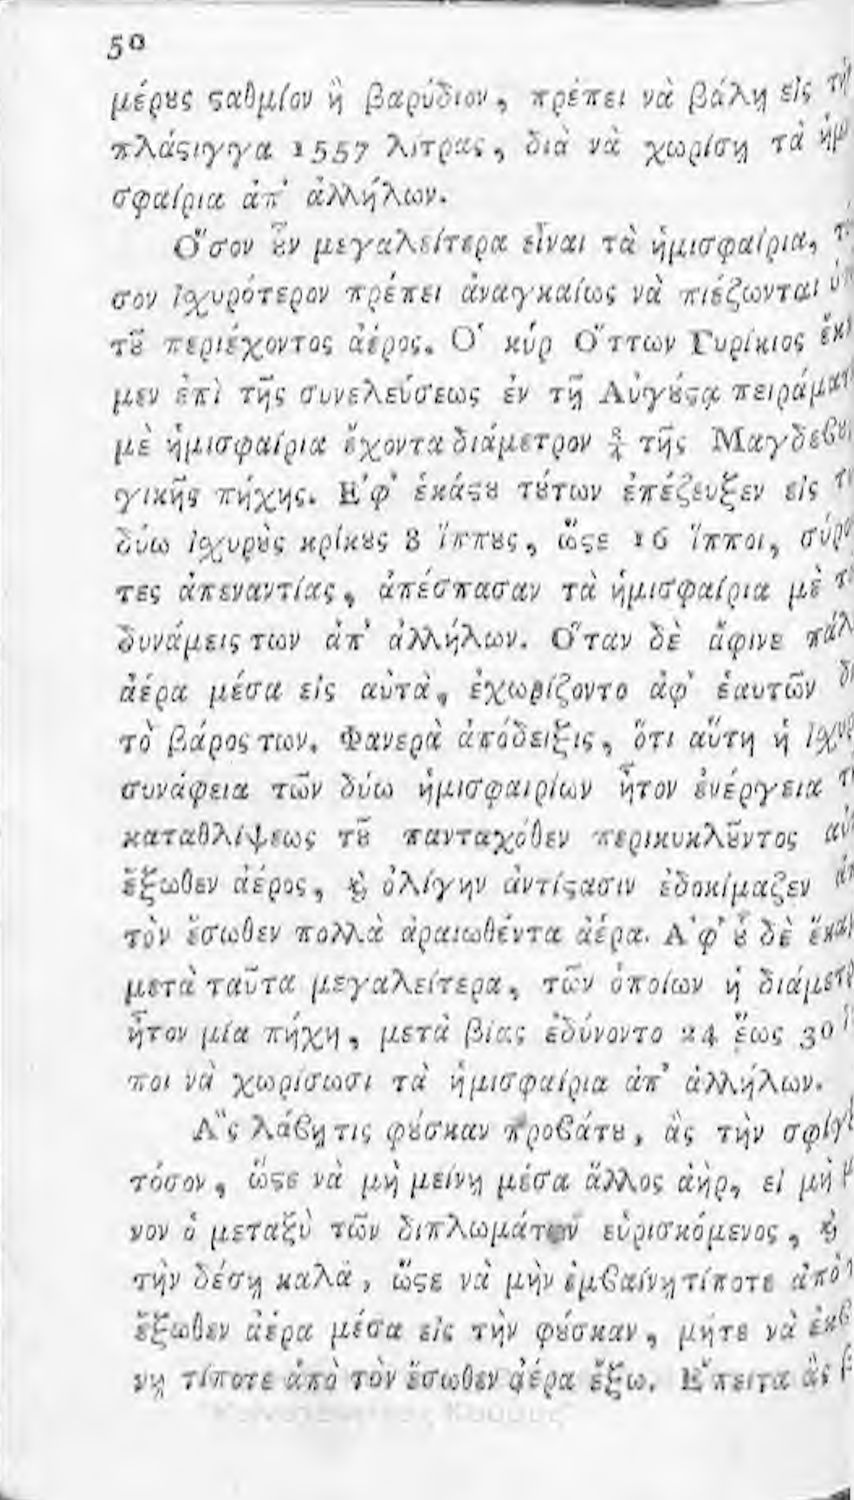 50
μέρȣς ϛαθμίον ἢ βαρύδιον, πρέπει νὰ βάλῃ εἰς τὴ
πλάϛιγγα 1557 λίτρας, διὰ νὰ χωρίσῃ τὰ ἡμι
σφαίρια ἀπ' ἀλλήλων.
Ὅσον ȣ̓͂ν μεγαλείτερα εἶναι τὰ ἡμισφαίρια, τό
σον ἰχυρότερον πρέπει ἀναγκαίως νὰ πιέζωνται ὑπ
τȣ͂ περιέχοντος ἀέρος. Ὁ κύρ Ὄττων Γυρίκιος ἔκα
μεν ἐπὶ τῆς συνελεύσεως ἐν τῇ Αὐγȣ́ϛᾳ πειράματ
μὲ ἡμισφαίρια ἔχοντα διάμετρον ¾ τῆς Μαγδεβȣρ
γικῆς πήχης. Ἐφ' ἑκάϛȣ τȣ́των ἐπέζευξεν εἰς τ
δύω ἰχυρȣ̀ς κρίκȣς 8 ἵππȣς, ὥϛε 16 ἵπποι, σύρο
τες ἀπεναντίας, ἀπέσπασαν τὰ ἡμισφαίρια μὲ τ
δυνάμεις των ἀπ' ἀλλήλων. Ὅταν δὲ ἄφινε πάλ
ἀέρα μέσα εἰς αὐτὰ, ἐχωρίζοντο ἀφ' ἑαυτῶν δι
τὸ βάρος των. Φανερὰ ἀπόδειξις, ὅτι αὕτη ἡ ἰχυρ
συνάφεια τῶν δύω ἡμισφαιρίων ἦτον ἐνέργεια τ
καταθλίψεως τȣ͂ πανταχόθεν περικυκλȣ͂ντος αὐ
ἔξωθεν ἀέρος, ϗ̀ ὀλίγην ἀντίϛασιν ἐδοκίμαζεν ἀπ
τὸν ἔσωθεν πολλὰ ἀραιωθέντα ἀέρα. Ἀφ' ȣ̔͂ δὲ ἔκαμ
μετὰ ταῦτα μεγαλείτερα, τῶν ὁποίων ἡ διάμετρ
ἦτον μία πήχη, μετὰ βίας ἐδύνοντο 24 ἕως 30 ἵπ
ποι νὰ χωρίσωσι τὰ ἡμισφαίρια ἀπ' ἀλλήλων.
Ἂς λάβῃ τις φȣ́σκαν προβάτȣ, ἂς τὴν σφίγξ
τόσον, ὥϛε νὰ μὴ μείνῃ μέσα ἄλλος ἀὴρ, εἰ μὴ μ
νον ὁ μεταξὺ τῶν διπλωμάτων εὑρισκόμενος, ϗ̀
τὴν δέσῃ καλά, ὥϛε νὰ μὴν ἐμβαίνῃ τίποτε ἀπὸ τ
ἔξωθεν ἀέρα μέσα εἰς τὴν φȣ́σκαν, μήτε νὰ ἐκβ
νῃ τίποτε ἀπὸ τὸν ἔσωθεν ἀέρα ἔξω. Ἔπειτα ἂς β